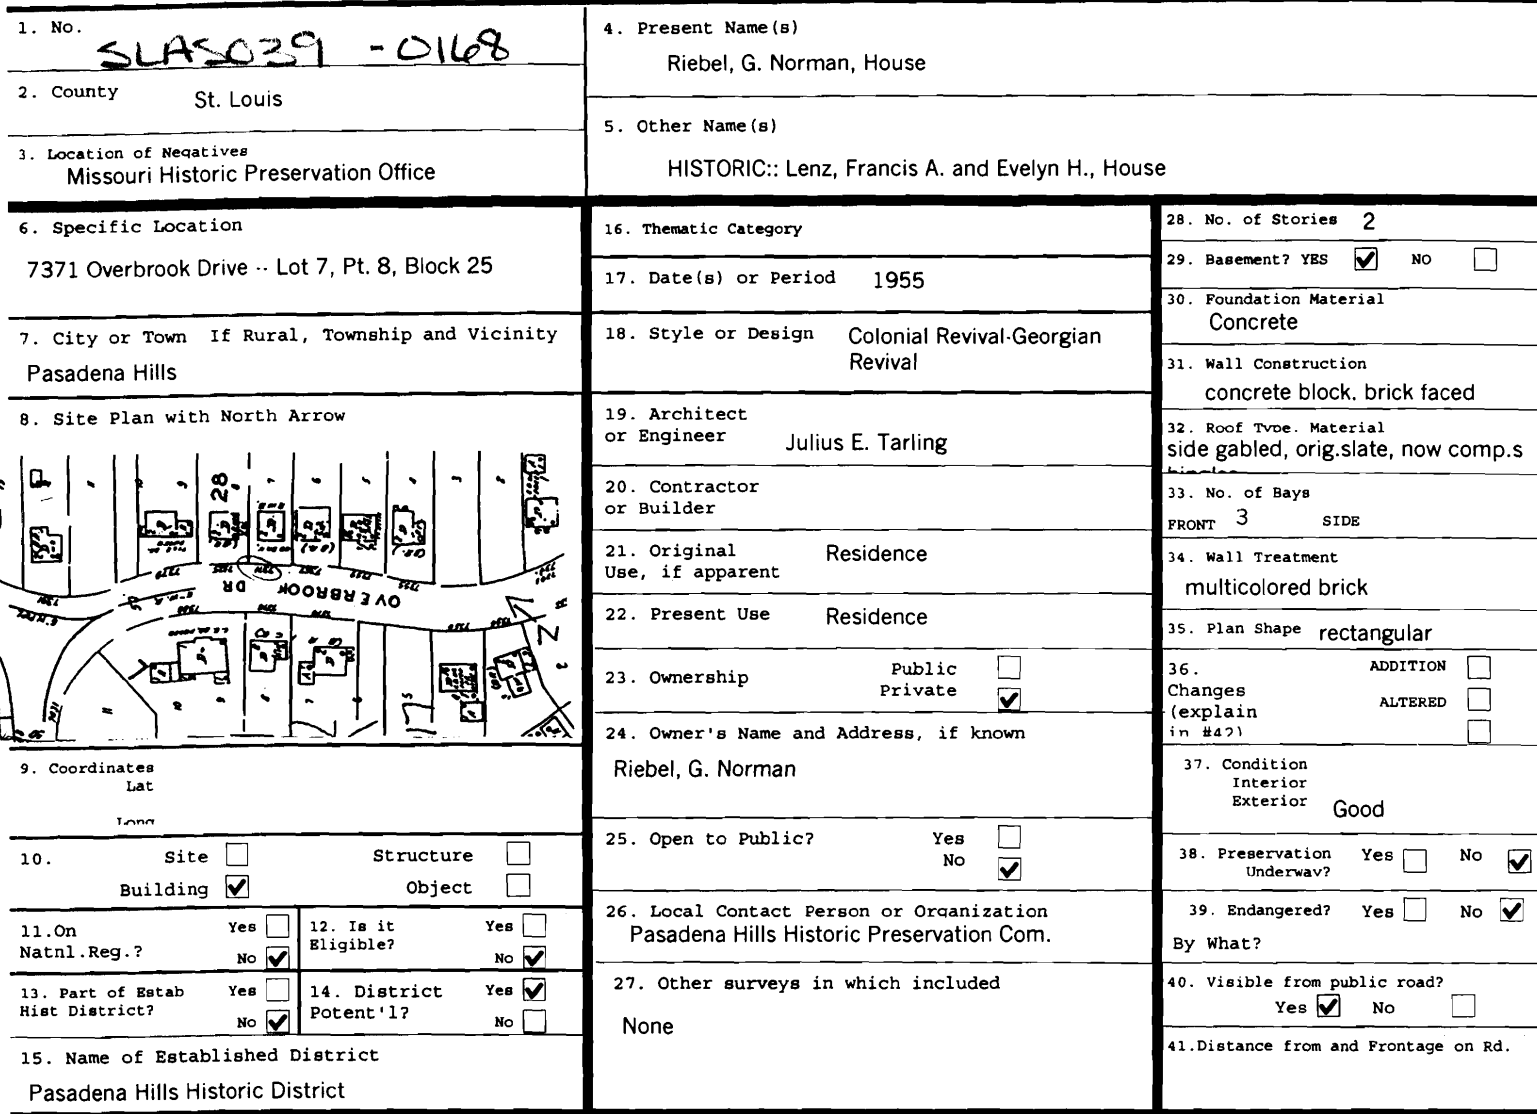 1. No.
SLAS039 -0168
2. County St. Louis
3. Location of Negatives
Missouri Historic Preservation Office
4. Present Name(s)
Riebel, G. Norman, House
5. Other Name(s)
HISTORIC:: Lenz, Francis A. and Evelyn H., House
6. Specific Location
7371 Overbrook Drive -- Lot 7, Pt. 8, Block 25
7. City or Town If Rural, Township and Vicinity
Pasadena Hills
8. Site Plan with North Arrow
28
OVERBROOK DR
9. Coordinates
Lat
Long
10. Site Structure
Building Object
11.On Yes
Natnl.Reg.? No
12. Is it Yes
Eligible? No
13. Part of Estab Yes
Hist District? No
14. District Yes
Potent'l? No
15. Name of Established District
Pasadena Hills Historic District
16. Thematic Category
17. Date(s) or Period 1955
18. Style or Design Colonial Revival-Georgian
Revival
19. Architect
or Engineer Julius E. Tarling
20. Contractor
or Builder
21. Original Residence
Use, if apparent
22. Present Use Residence
23. Ownership Public
Private
24. Owner's Name and Address, if known
Riebel, G. Norman
25. Open to Public? Yes
No
26. Local Contact Person or Organization
Pasadena Hills Historic Preservation Com.
27. Other surveys in which included
None
28. No. of Stories 2
29. Basement? YES NO
30. Foundation Material
Concrete
31. Wall Construction
concrete block, brick faced
32. Roof Type. Material
side gabled, orig.slate, now comp.s
hingles
33. No. of Bays
FRONT 3 SIDE
34. Wall Treatment
multicolored brick
35. Plan Shape rectangular
36. ADDITION
Changes
(explain ALTERED
in #42)
37. Condition
Interior
Exterior Good
38. Preservation Yes No
Underway?
39. Endangered? Yes No
By What?
40. Visible from public road?
Yes No
41.Distance from and Frontage on Rd.